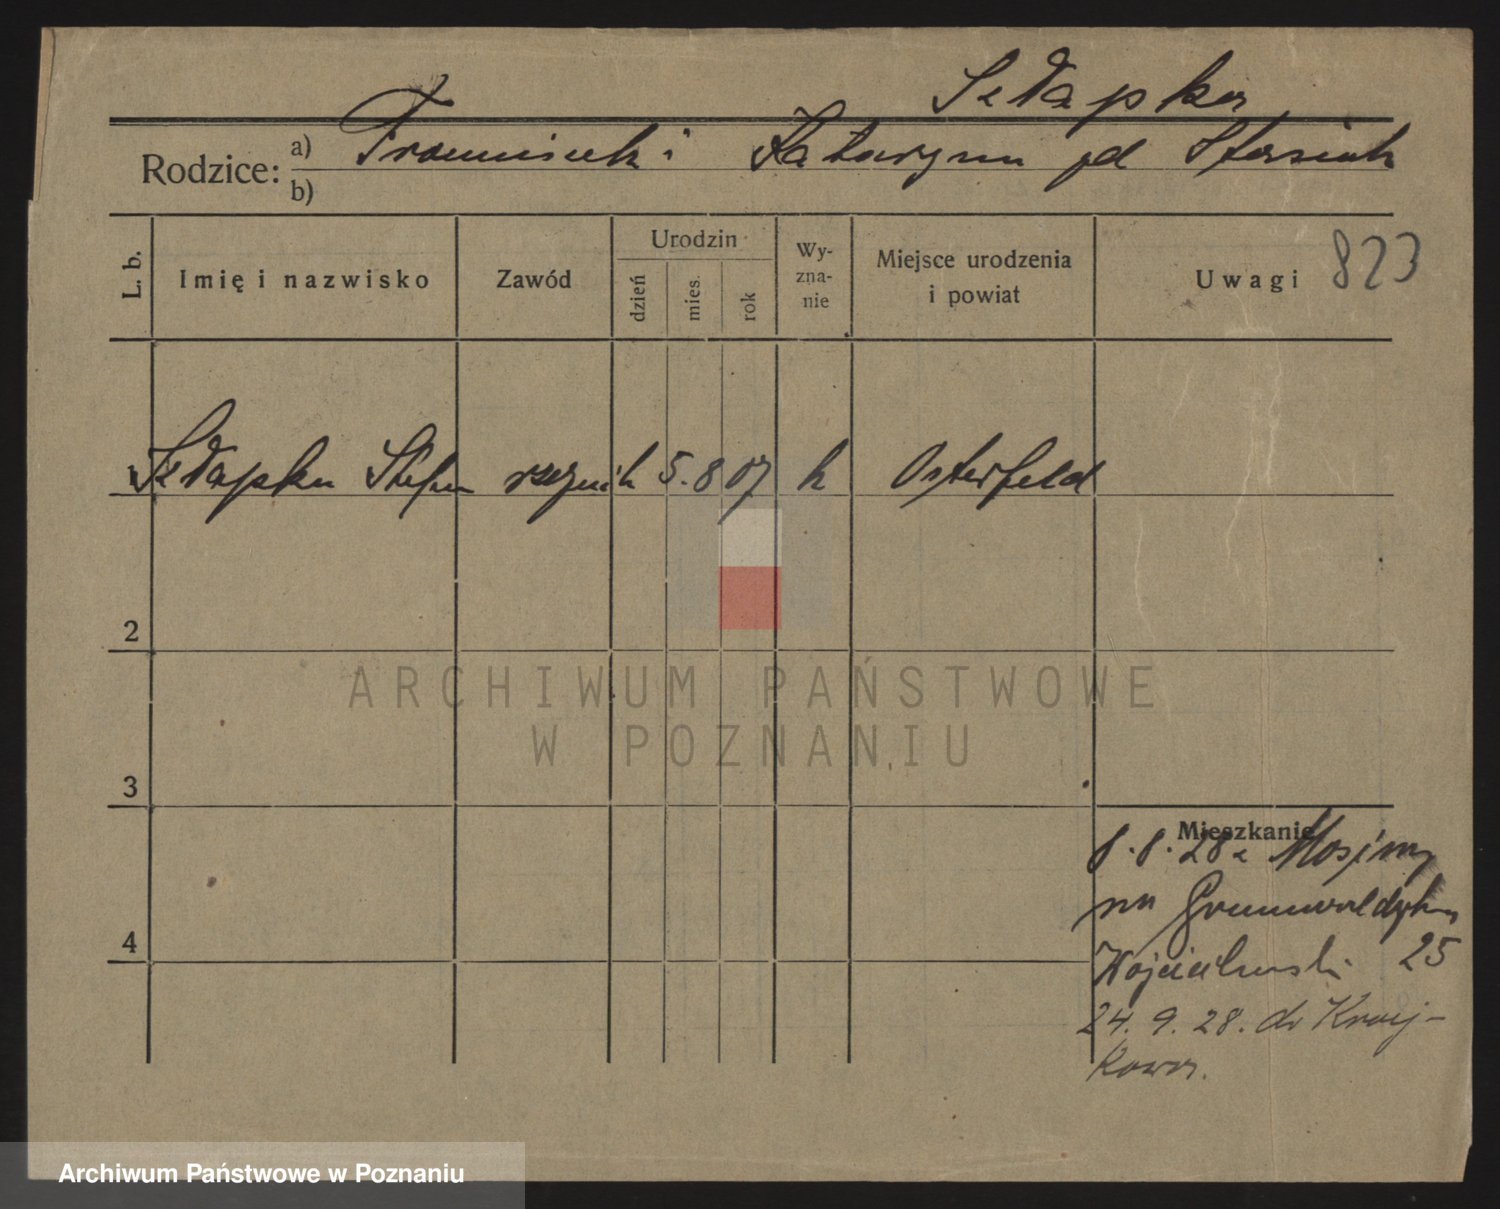 Szłapka
Rodzice: a) Franciszek i Katarzyna zd Stasiak
b)
L. b. Imię i nazwisko Zawód Urodzin dzień mies. rok Wy-zna-nie Miejsce urodzenia i powiat Uwagi 823
Szłapka Stefan rzeźnik 5. 8 07 k Osterfeld
2
ARCHIWUM PAŃSTWOWE
W POZNANIU
3
Mieszkanie
8.8.28 z Mosiny
na Grunwaldzka
Wojciechowski 25
24. 9. 28. do Kraj-
kowa.
4
Archiwum Państwowe w Poznaniu